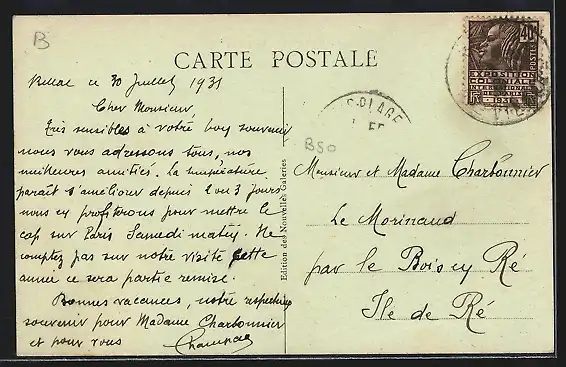 B
CARTE POSTALE
Bellac ce 30 Juillet 1931
Cher Monsieur
Très sensibles à votre bon souvenir
nous vous adressons tous, nos
meilleures amitiés. La température
paraît s'améliorer depuis 2 ou 3 jours
nous en profiterons pour mettre le
cap sur Paris Samedi matin. Ne
comptez pas sur notre visite cette
année ce sera partie remise.
Bonnes vacances, notre respectueux
souvenir pour Madame Charbonnier
et pour vous
Edition des Nouvelles Galeries
40c
POSTES
EXPOSITION
COLONIALE
INTERNATIONALE
DE PARIS
1931
PLAGE
B50
Monsieur et Madame Charbonnier
Le Morinaud
par le Bois en Ré
Ile de Ré